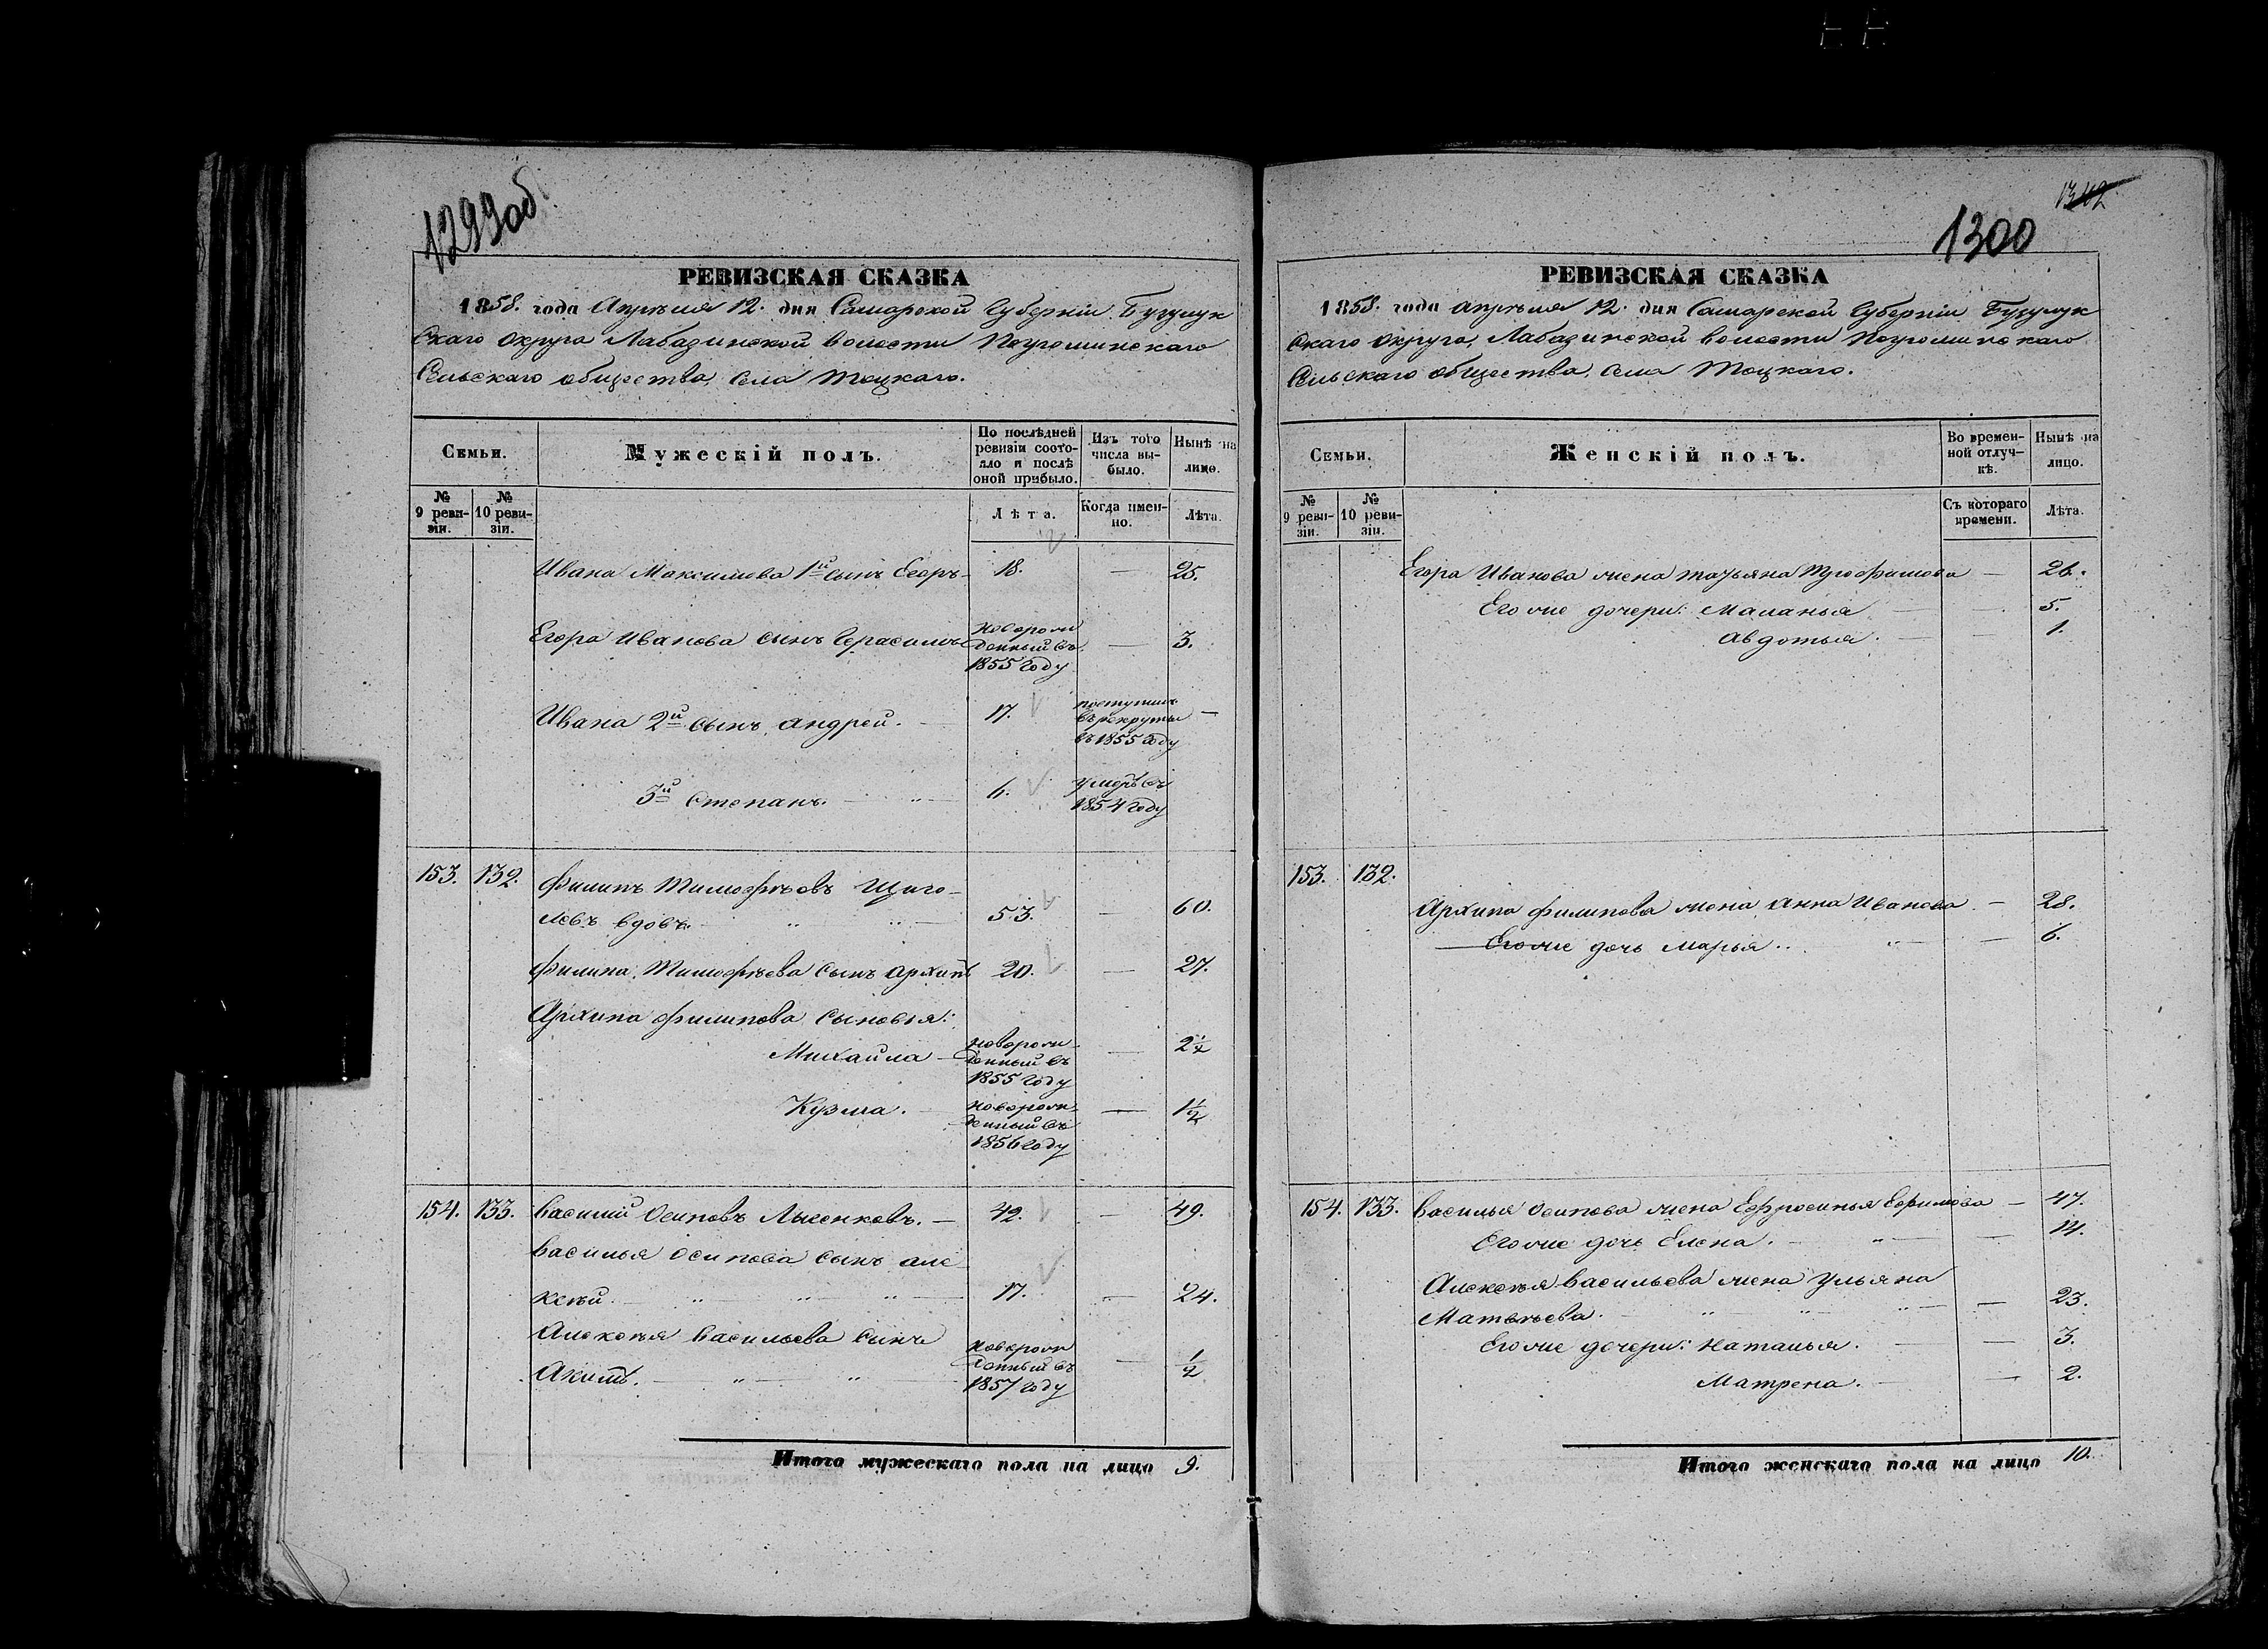 1299об.
РЕВИЗСКАЯ СКАЗКА
1858. года Апрѣля 12. дня Самарской Губерніи Бузулук
скаго округа Лабазинской волости Погроминскаго
Сельскаго общества, села Тоцкаго.
Семьи.
Мужескій полъ.
По послѣдней ревизіи состояло и послѣ оной прибыло.
Изъ того числа выбыло.
Нынѣ на лицо.
№ 9 ревизіи.
№ 10 ревизіи.
Лѣта.
Когда именно.
Лѣта.
Ивана Максимова 1й сынъ Егоръ 18. — 25.
Егора Иванова сынъ Герасимъ новорожденный въ 1855 году — 3.
Ивана 2й сынъ Андрей. 17. поступилъ въ рекруты въ 1855 году —
3й Степанъ. 6. умеръ въ 1854 году
153. 132. Филипъ Тимофѣевъ Щиго-
левъ вдовъ 53. — 60.
Филипа Тимофѣева сынъ Архипъ 20. — 27.
Архипа Филипова сыновья:
Михайла — новорожденный въ 1855 году — 2½
Кузма. новорожденный въ 1856 году — 1½
154. 133. Василий Осиповъ Лысенковъ. — 42. — 49.
Василья Осипова сынъ Але-
ксѣй. 17. — 24.
Алексѣя Васильева сынъ
Акимъ. новорожденный въ 1857 году — ½
Итого мужескаго пола на лицо 9.
1342
1300
РЕВИЗСКАЯ СКАЗКА
1858. года апрѣля 12. дня Самарской Губерніи Бузулук
скаго округа, Лабазинской волости Погроминскаго
Сельскаго общества, села Тоцкаго.
Семьи.
Женскій полъ.
Во временной отлучкѣ.
Нынѣ на лицо.
№ 9 ревизіи.
№ 10 ревизіи.
Съ котораго времени.
Лѣта.
Егора Иванова жена Татьяна Трофимова — 26.
Егоже дочери: Маланья 5.
Авдотья. — 1.
153. 132.
Архипа Филипова жена Анна Иванова — 28.
Егоже дочь Марья — 6.
154. 133. Василья Осипова жена Ефросинья Ефимова — 47.
Егоже дочь Елена. — 14.
Алексѣя Васильева жена Ульяна
Матвѣева. — 23.
Егоже дочери: Наталья. — 3.
Матрена. — 2.
Итого женскаго пола на лицо 10.